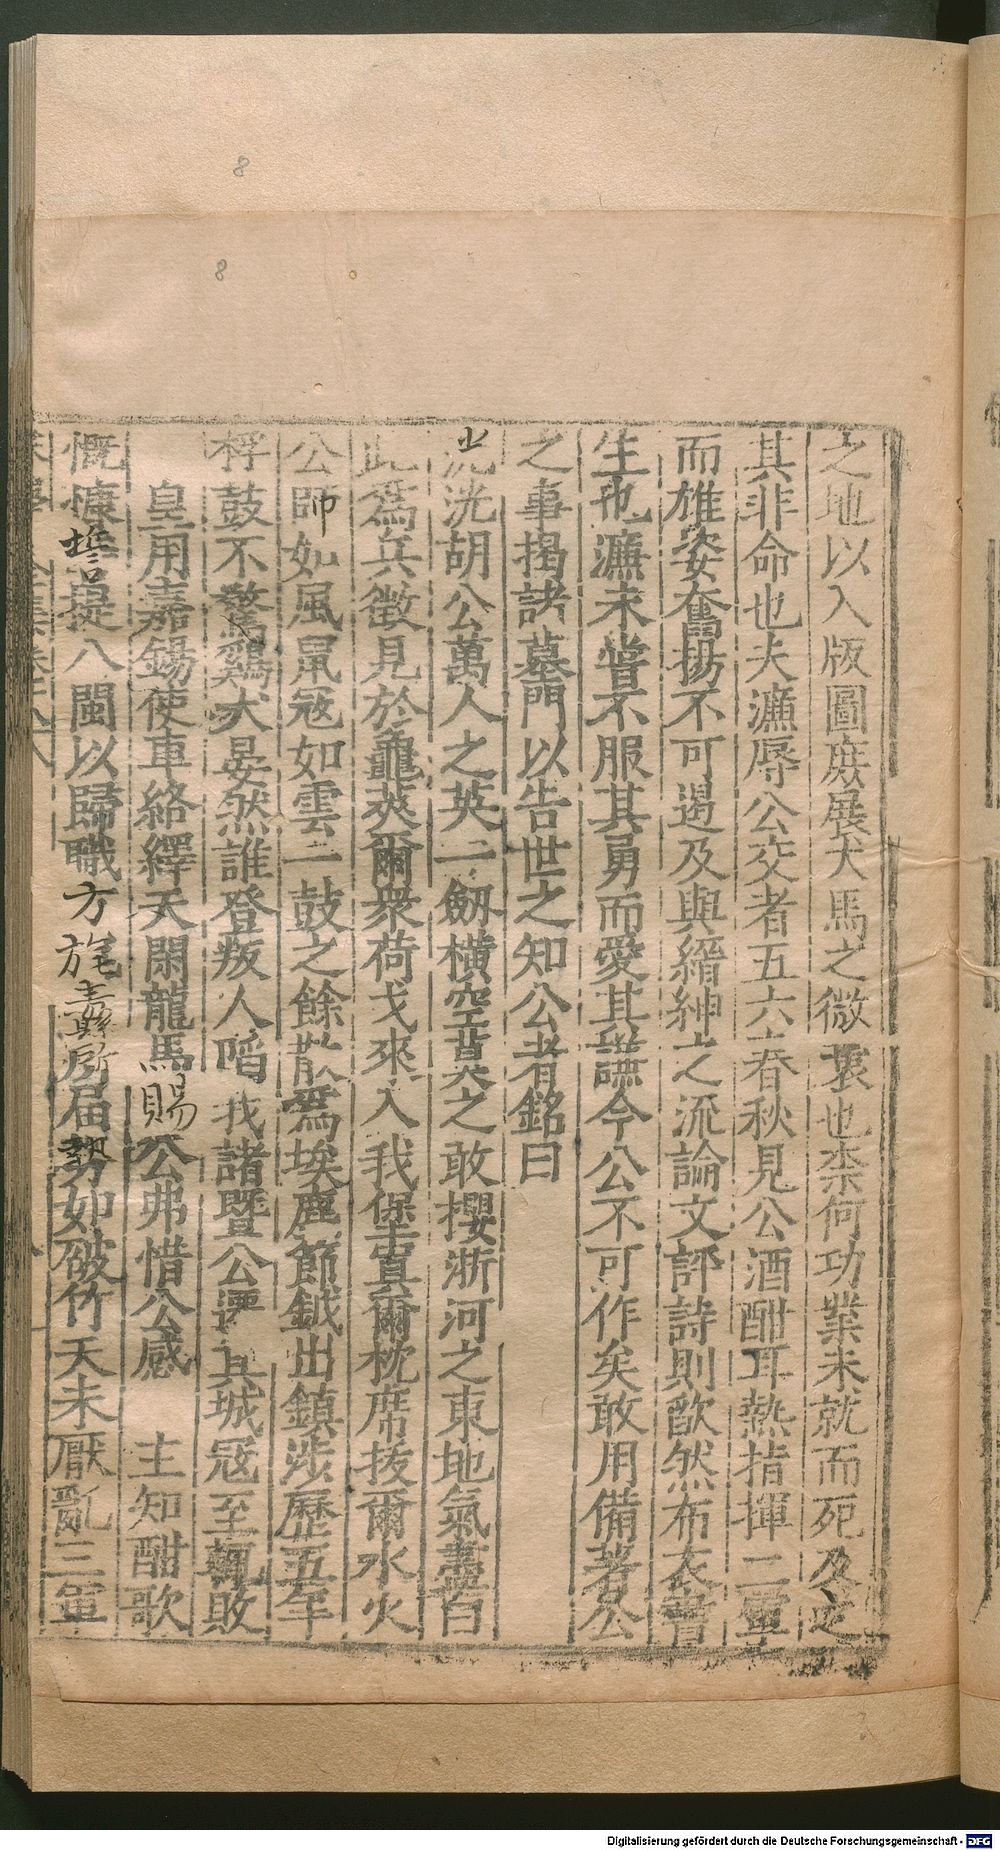 8
8
之地以入版圖庶展犬馬之微衷也柰何功業未就而死及之
其非命也夫濂辱公交者五六春秋見公酒酣耳熱指揮二軍
而雄姿奮揚不可遏及與縉紳之流論文評詩則歛然布衣書
生也濂未嘗不服其勇而愛其謙今公不可作矣敢用備著公
之事揭諸墓門以告世之知公者銘曰
洸洸胡公萬人之英一劒橫空莫之敢攖浙河之東地氣盡白
此爲兵徵見於龜莢爾衆荷戈來入我堡寘爾枕席拔爾水火
公師如風鼠冦如雲一鼓之餘散爲埃塵節鉞出鎮涉歷五年
桴鼓不驚鷄犬晏然誰登叛人啗我諸曁公遷其城冦至輒敗
皇用嘉錫使車絡繹天閑龍馬賜公弗惜公感 主知酣歌
慨慷誓提八閩以歸職方旄纛所届勢如破竹天未厭亂三軍
Digitalisierung gefördert durch die Deutsche Forschungsgemeinschaft - DFG